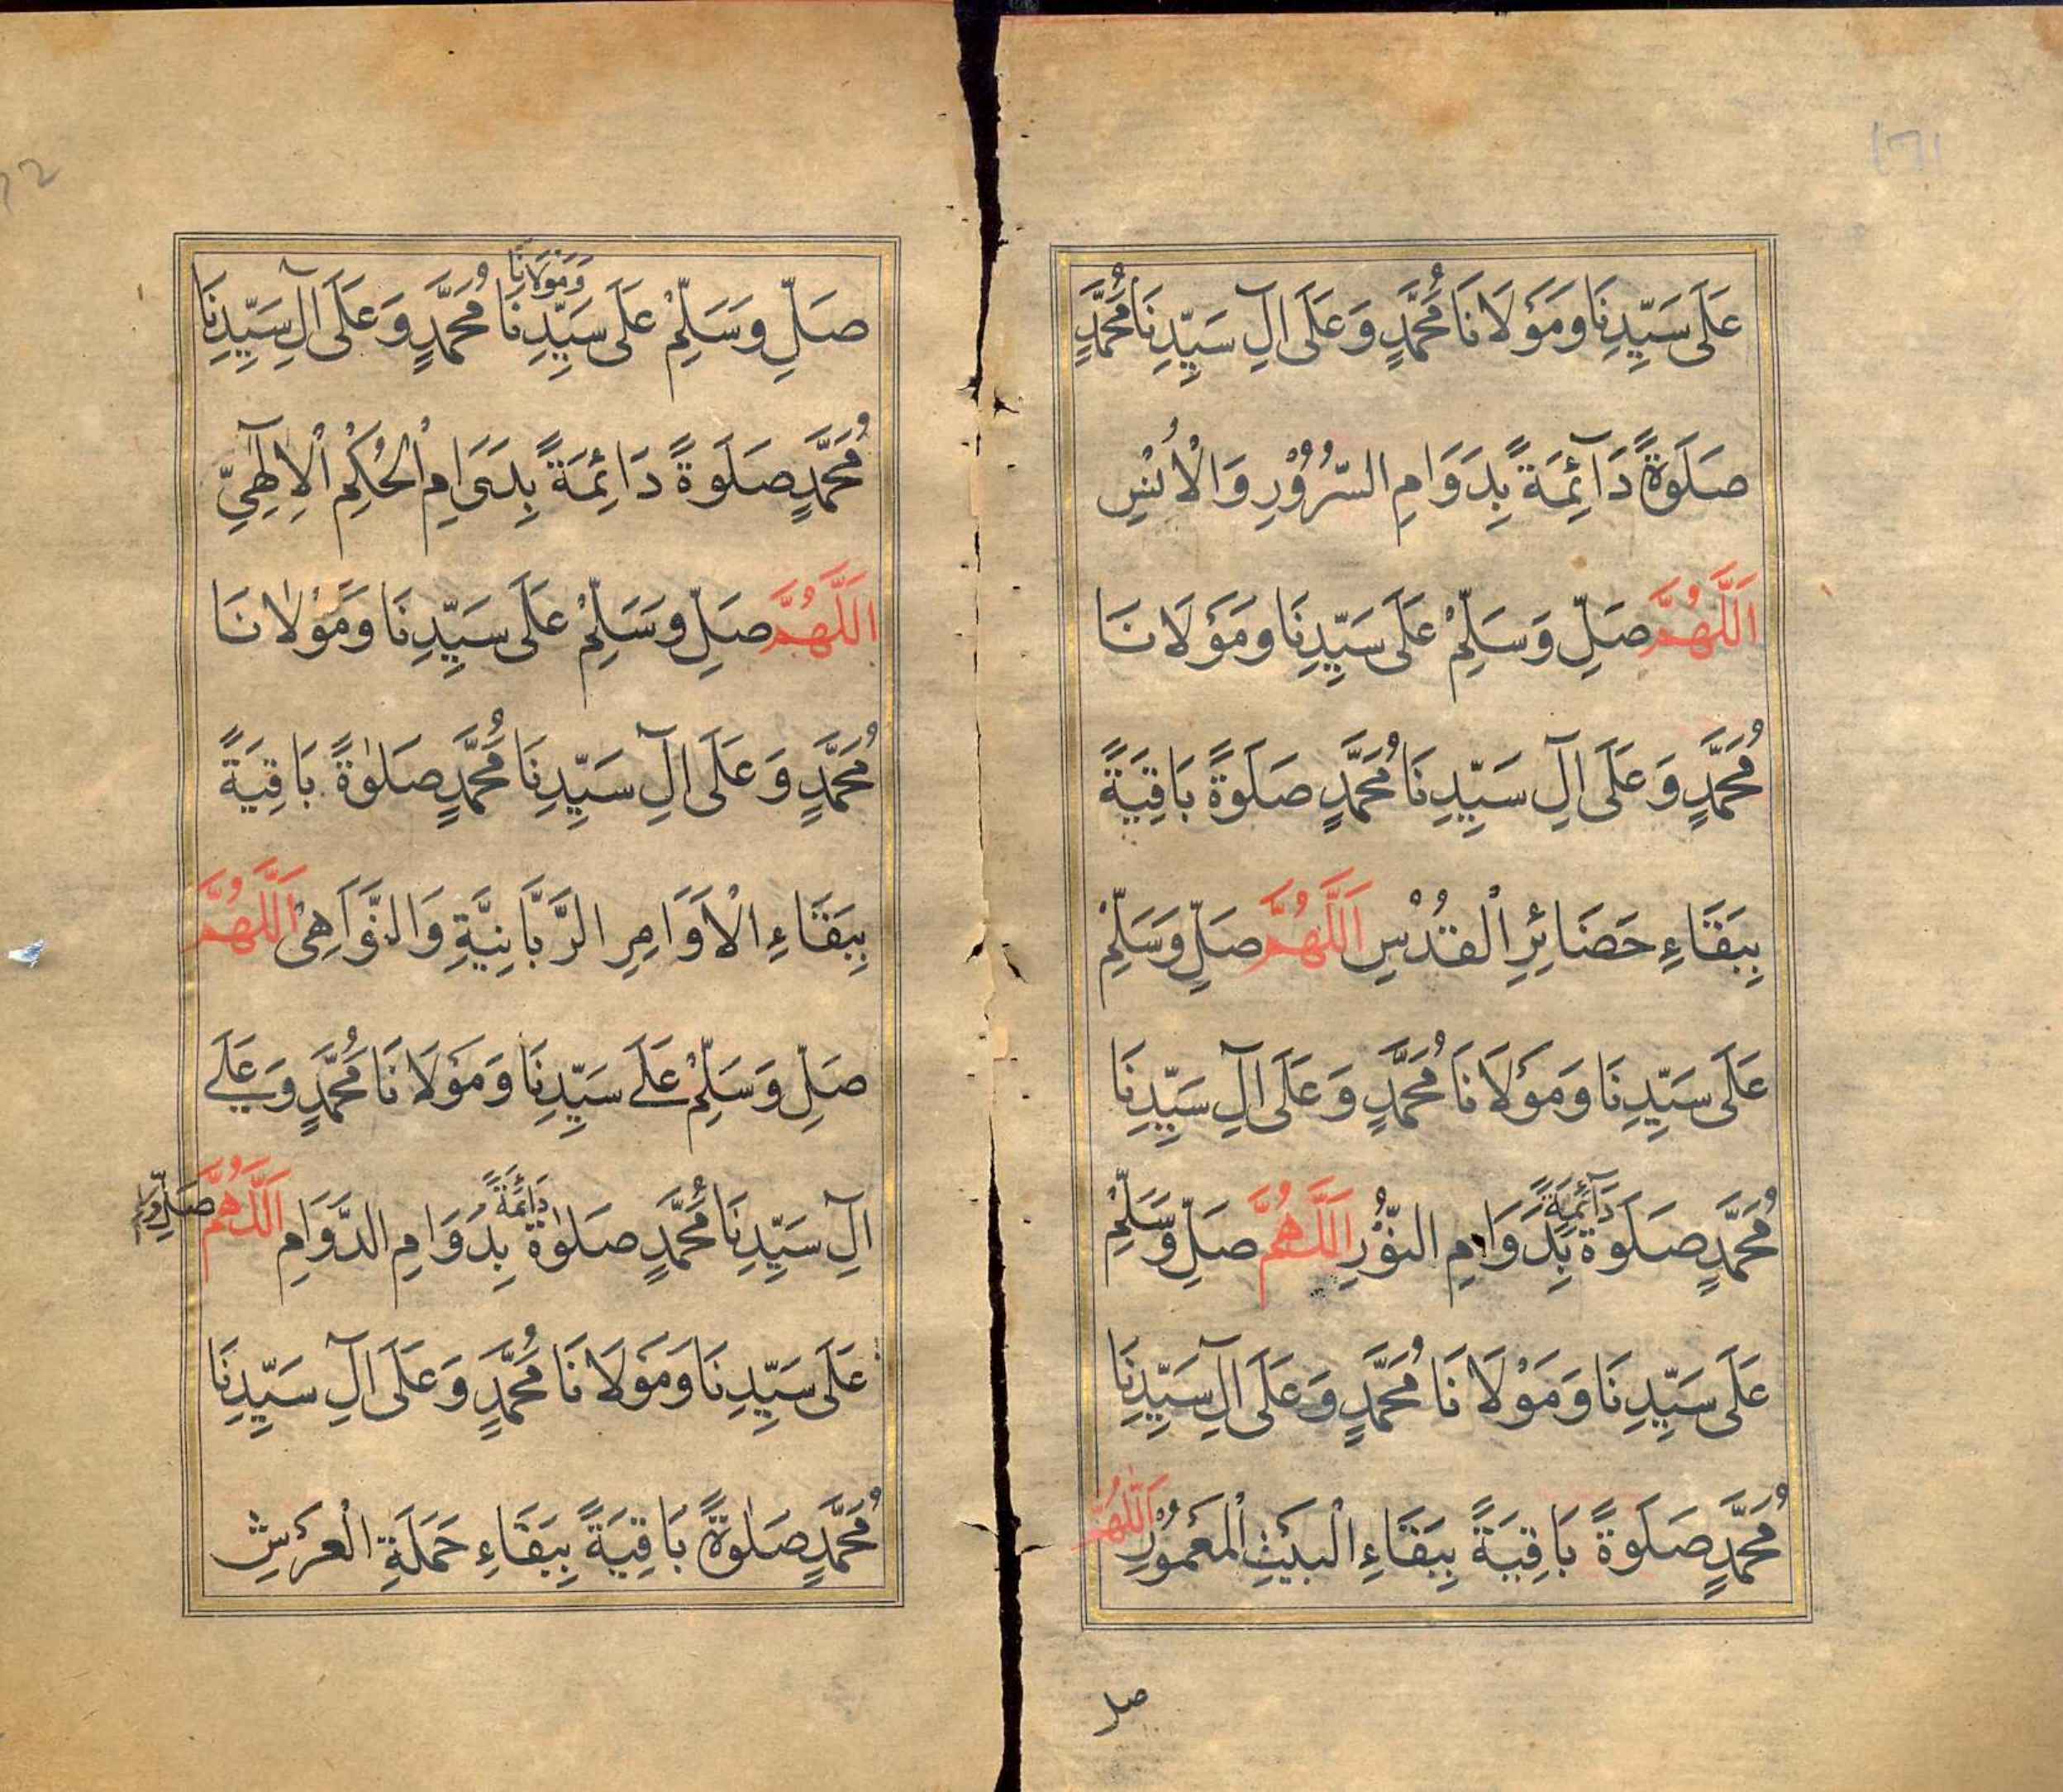 عَلَى سَيِّدِنَا وَمَوْلَانَا مُحَمَّدٍ وَعَلَى اٰلِ سَيِّدِنَا مُحَمَّدٍ
صَلَوةً دَآئِمَةً بِدَوَامِ السُّرُوْرِ وَالْاُنْسِ
اَللَّهُمَّ صَلِّ وَسَلِّمْ عَلَى سَيِّدِنَا وَمَوْلَانَا
مُحَمَّدٍ وَعَلَى اٰلِ سَيِّدِنَا مُحَمَّدٍ صَلَوةً بَاقِيَةً
بِبَقَاءِ حَضَائِرِ الْقُدْسِ اَللَّهُمَّ صَلِّ وَسَلِّمْ
عَلَى سَيِّدِنَا وَمَوْلَانَا مُحَمَّدٍ وَعَلَى اٰلِ سَيِّدِنَا
مُحَمَّدٍ صَلَوةً دَآئِمَةً بِدَوَامِ النُّوْرِ اَللَّهُمَّ صَلِّ وَسَلِّمْ
عَلَى سَيِّدِنَا وَمَوْلَانَا مُحَمَّدٍ وَعَلَى اٰلِ سَيِّدِنَا
مُحَمَّدٍ صَلَوةً بَاقِيَةً بِبَقَاءِ الْبَيْتِ الْمَعْمُوْرِ اَللَّهُمَّ
صل
صَلِّ وَسَلِّمْ عَلَى سَيِّدِنَا وَمَوْلَانَا مُحَمَّدٍ وَعَلَى اٰلِ سَيِّدِنَا
مُحَمَّدٍ صَلَوةً دَائِمَةً بِدَوَامِ الْحُكْمِ الْاِلٰهِيِّ
اَللَّهُمَّ صَلِّ وَسَلِّمْ عَلَى سَيِّدِنَا وَمَوْلَانَا
مُحَمَّدٍ وَعَلَى اٰلِ سَيِّدِنَا مُحَمَّدٍ صَلَوٰةً بَاقِيَةً
بِبَقَاءِ الْاَوَامِرِ الرَّبَّانِيَّةِ وَالنَّوَاهِى اَللَّهُمَّ
صَلِّ وَسَلِّمْ عَلَے سَيِّدِنَا وَمَوْلَانَا مُحَمَّدٍ وَعَلَے
اٰلِ سَيِّدِنَا مُحَمَّدٍ صَلَوٰةً دَائِمَةً بِدَوَامِ الدَّوَامِ اَللَّهُمَّ صَلِّ وَسَلِّمْ
عَلَى سَيِّدِنَا وَمَوْلَانَا مُحَمَّدٍ وَعَلَى اٰلِ سَيِّدِنَا
مُحَمَّدٍ صَلَوٰةً بَاقِيَةً بِبَقَاءِ حَمَلَةِ الْعَرْشِ